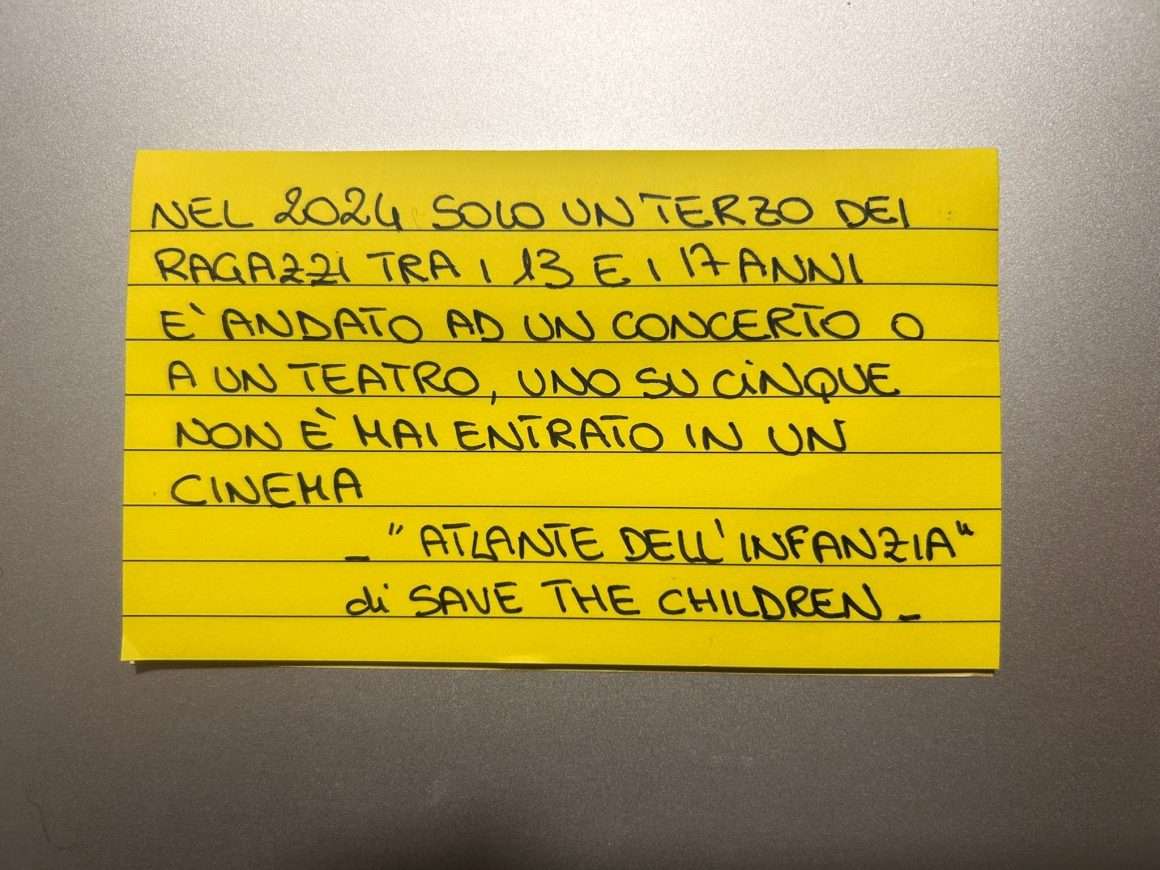 NEL 2024 SOLO UN TERZO DEI
RAGAZZI TRA I 13 E I 17 ANNI
E' ANDATO AD UN CONCERTO O
A UN TEATRO, UNO SU CINQUE
NON È MAI ENTRATO IN UN
CINEMA
_ "ATLANTE DELL'INFANZIA"
di SAVE THE CHILDREN_